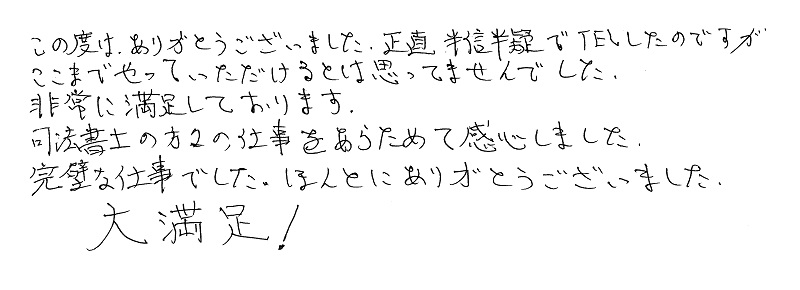 この度は、ありがとうございました. 正直 半信半疑でTELしたのですが
ここまでやっていただけるとは思ってませんでした.
非常に満足しております.
司法書士の方々の仕事をあらためて感心しました.
完璧な仕事でした。ほんとにありがとうございました.
大満足!